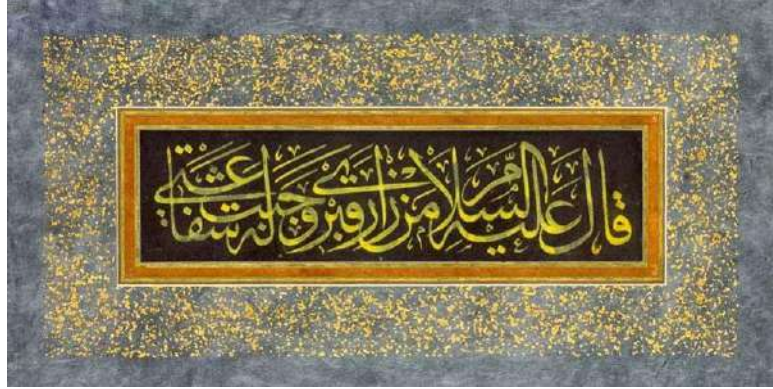 قال عليه السلام من زار قبري وجبت له شفاعتي